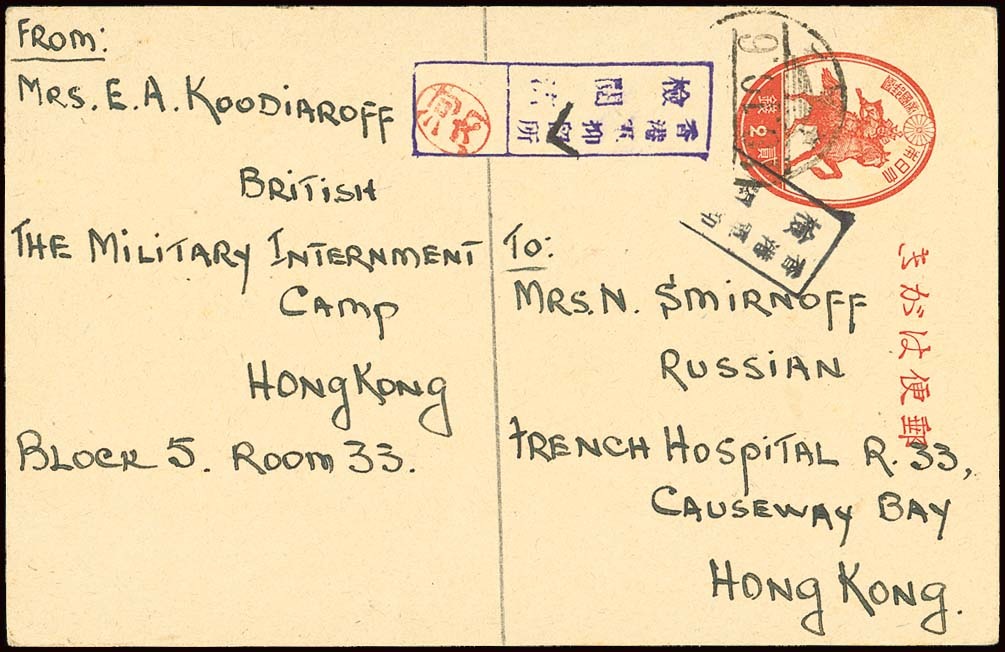 FROM:
MRS. E. A. KOODIAROFF
BRITISH
THE MILITARY INTERNMENT
CAMP
HONGKONG
BLOCK 5. ROOM 33.
檢閱済
香港軍抑留所
貳2錢
郵便はがき
TO:
MRS. N. SMIRNOFF
RUSSIAN
FRENCH HOSPITAL R. 33,
CAUSEWAY BAY
HONG KONG.